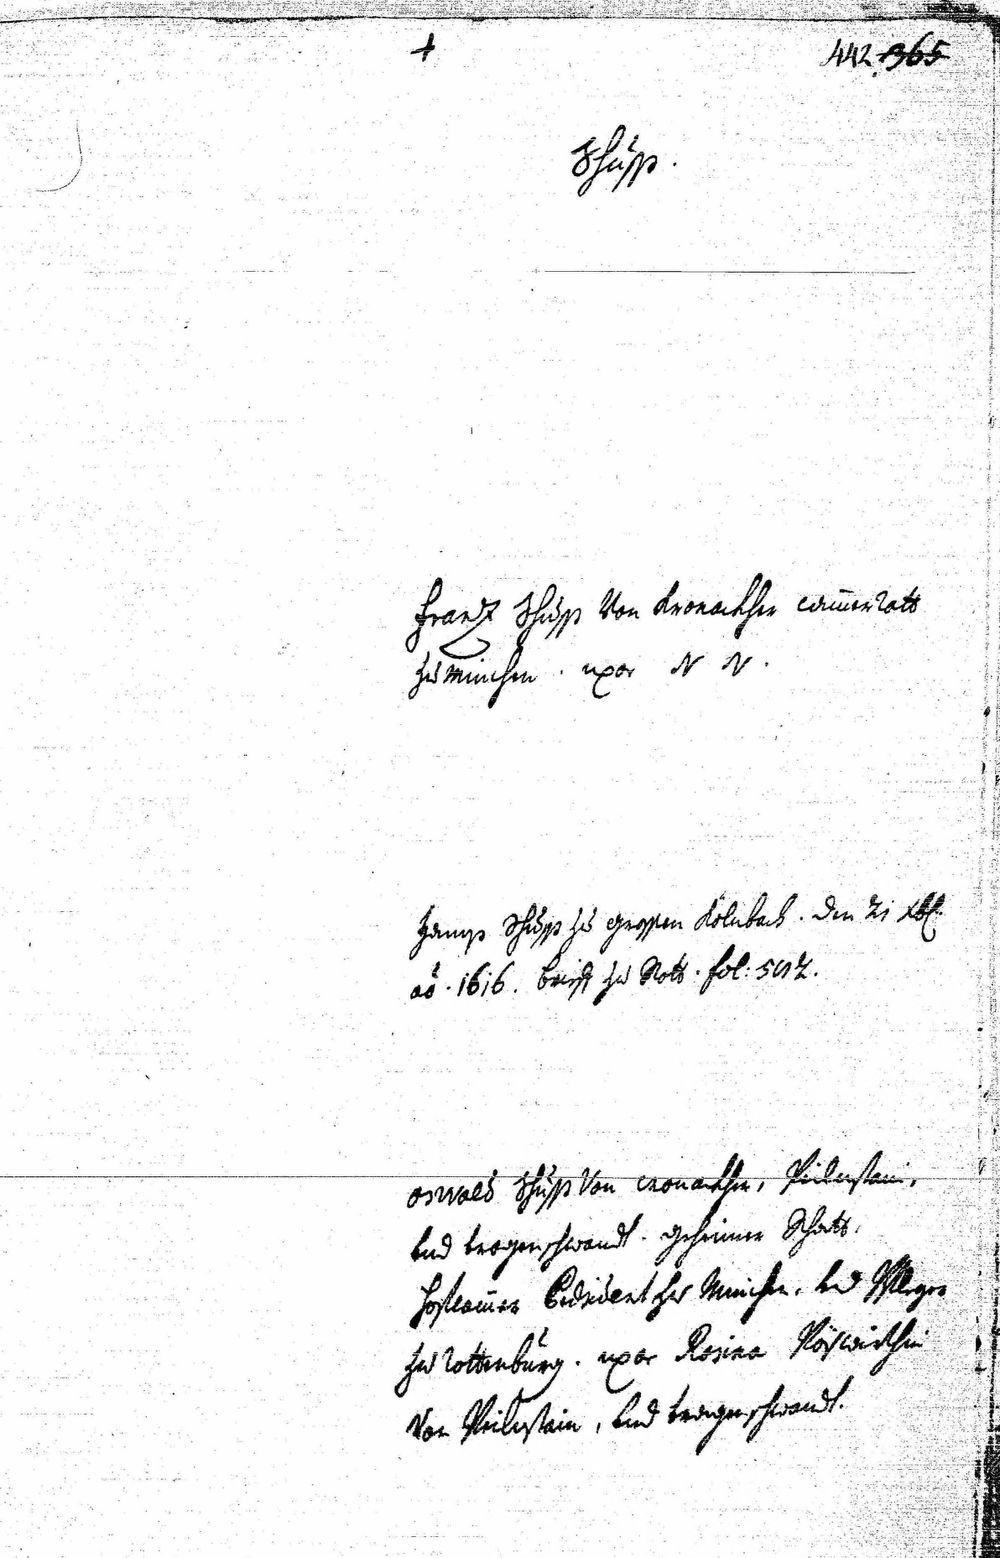 442. 365
Schuss.
Frantz Schuss Von Kronackher Camerrath
zu München. uxor N N.
Hanns Schuss zu grossen Kölnbach. den 21 Xbr.
aõ. 1616. brieff zu Rott. fol: 502.
Oswald Schuss Von Cronackher, Peilnstain,
und tragenschwandt. geheimer Rhatt,
Hofcamer President zu München, und Pfleger
zu Rottenburg. uxor Rosina
Von Peilnstain, und tragenschwandt.